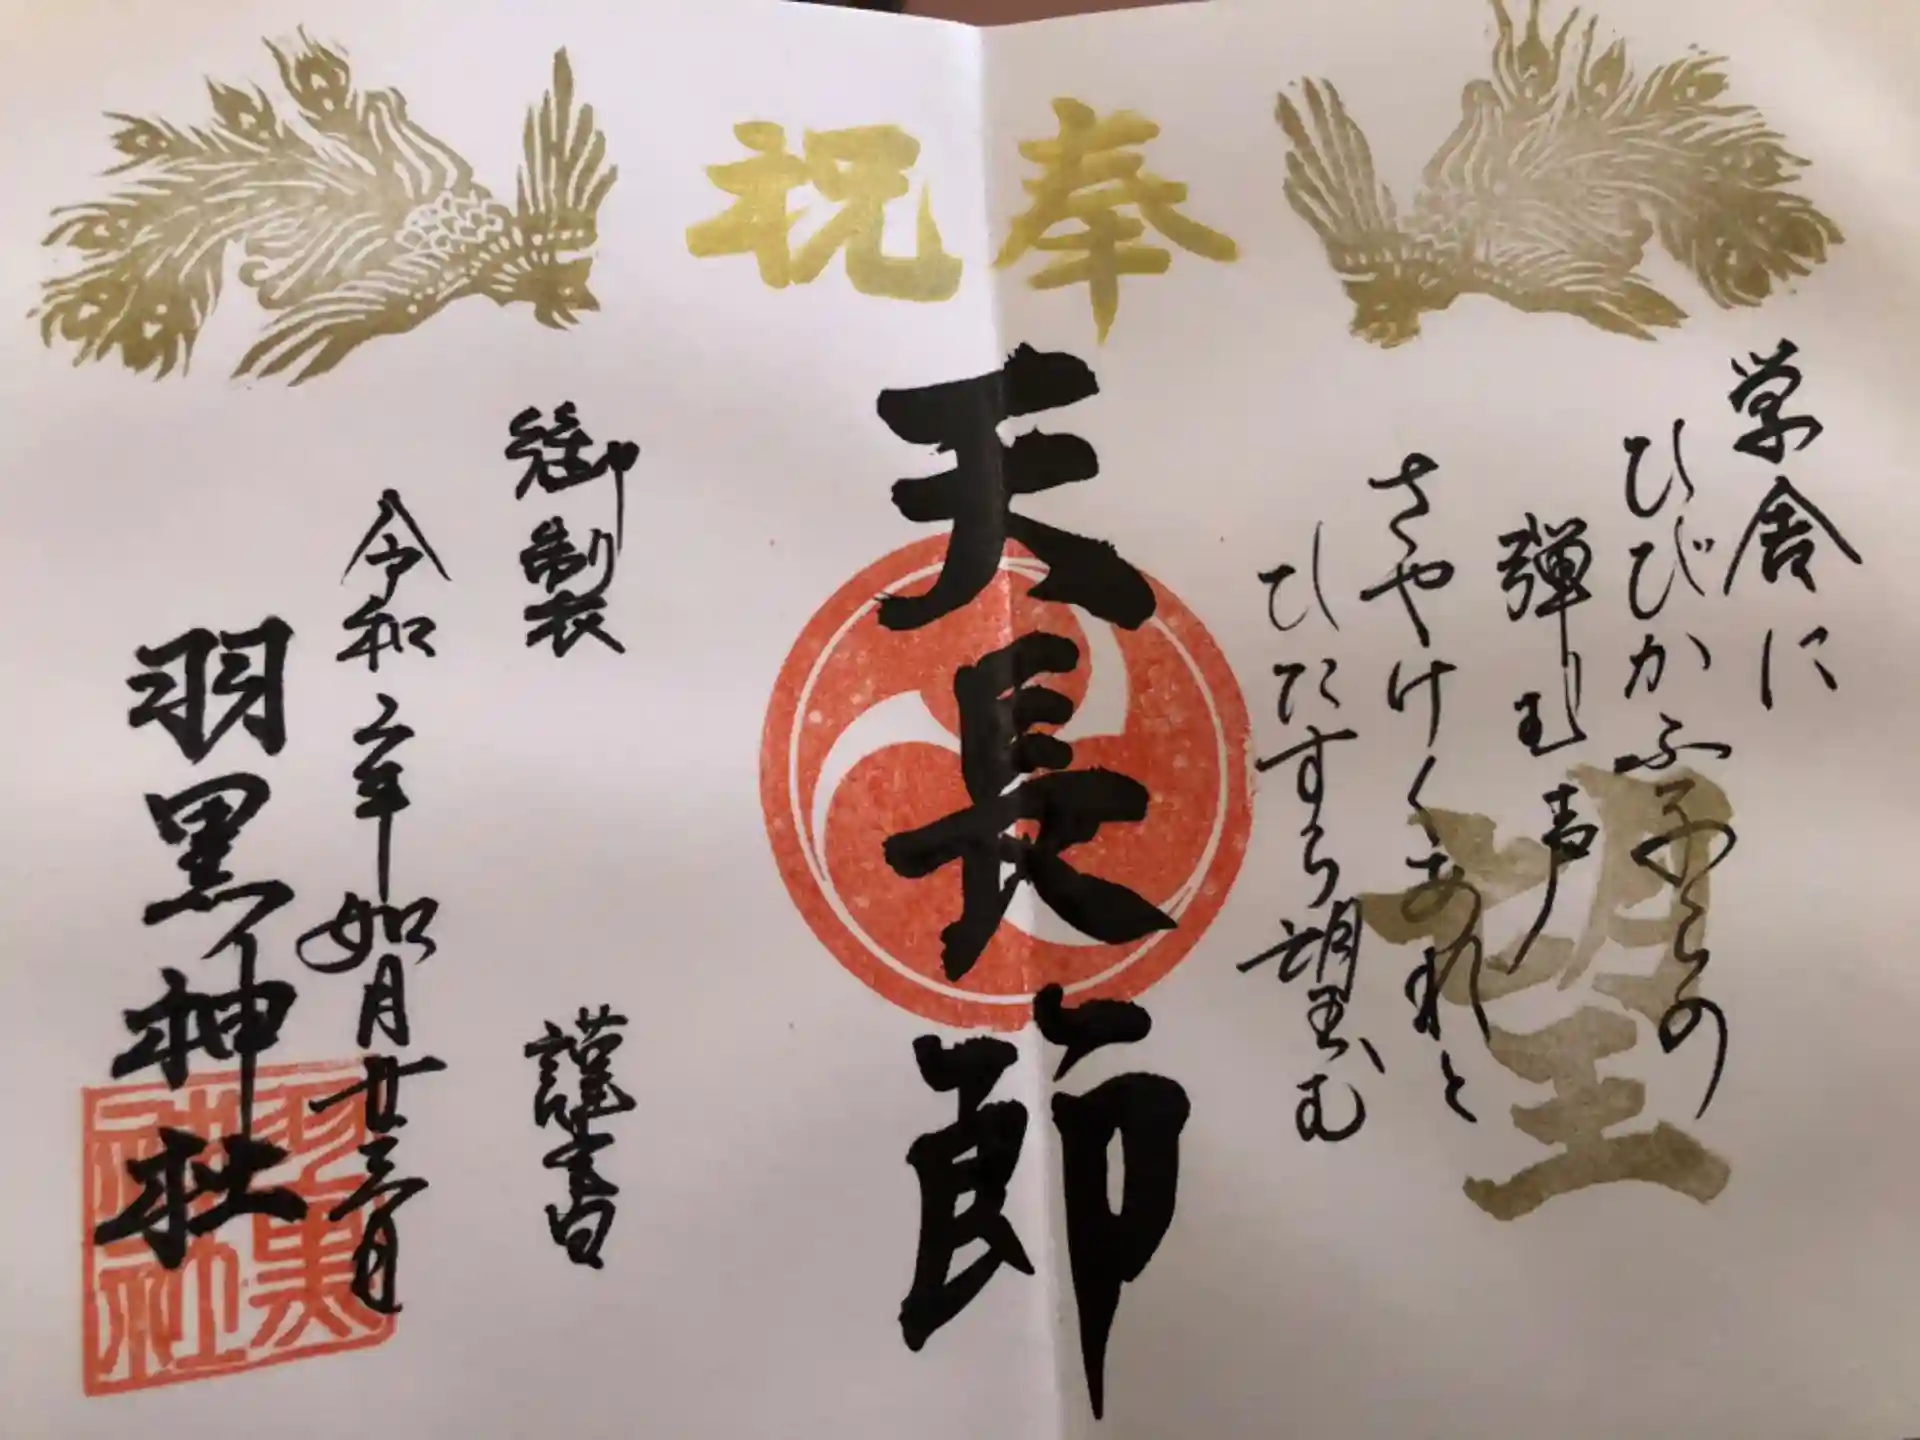 奉祝
学舎に
ひびかふ子らの
弾む声
さやけくあれと
ひたすら望む
望
天長節
御製 謹書
令和二年如月廿三日
羽黒神社
羽黒神社